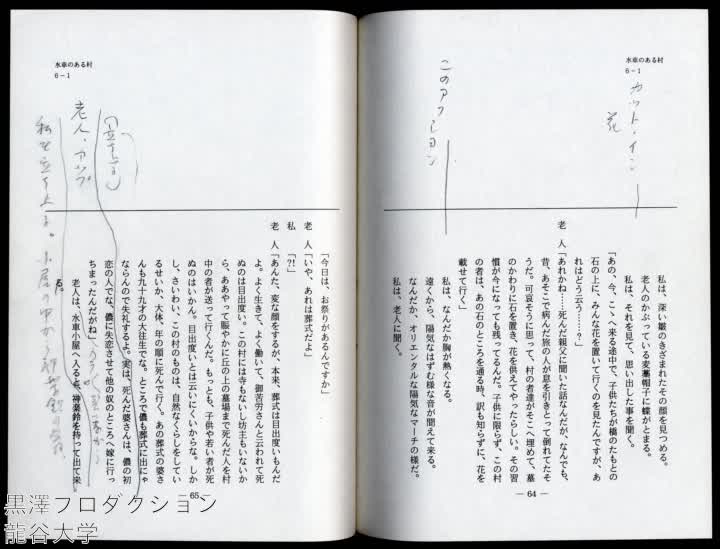 水車のある村
6-1
カット・イン
花
このアクション
私は、深い皺のきざまれたその顔を見つめる。
老人のかぶっている変な帽子に蝶がとまる。
私は、それを見て、思い出した事を聞く。
「あの、今、こゝへ来る途中で、子供たちが橋のたもとの
石の上に、みんな花を置いて行くのを見たんですが、あ
れはどう云う……?」
老人「あれかね……死んだ親父に聞いた話なんだが、なんでも、
昔、あそこで病んだ旅の人が息を引きとって倒れてたそ
うだ。可哀そうに思って、村の者達がそこへ埋めて、墓
のかわりに石を置き、花を供えてやったらしい。その習
慣が今になっても残ってるんだ。子供に限らず、この村
の者は、あの石のところを通る時、訳も知らずに、花を
載せて行く」
私は、なんだか胸が熱くなる。
遠くから、陽気なはずむ様な音が聞えて来る。
なんだか、オリエンタルな陽気なマーチの様だ。
私は、老人に聞く。
— 64 —
水車のある村
6-1
「今日は、お祭りがあるんですか」
老人「いや、あれは葬式だよ」
私「?!」
老人「あんた、変な顔をするが、本来、葬式は目出度いもんだ
よ。よく生きて、よく働いて、御苦労さんと云われて死
ぬのは目出度い。この村には寺もないし坊主もいないか
ら、ああやって賑やかに丘の上の墓場まで死んだ人を村
中の者が送って行くんだ。もっとも、子供や若い者が死
ぬのはいかん。目出度いとは云いにくいからな。しか
し、さいわい、この村のものは、自然なくらしをしてい
るせいか、大体、年の順に死んで行く。あの葬式の婆さ
んも九十九才の大往生でな。ところで儂も葬式に出にゃ
ならんので失礼するよ。実は、死んだ婆さんは、儂の初
恋の人でな、儂に失恋させて他の奴のところへ嫁に行っ
ちまったんだがね」
老人は、水車小屋へ入ると、神楽鈴を持って出て来
る。
老人、アップ
— 65 —
黒澤プロダクション
龍谷大学